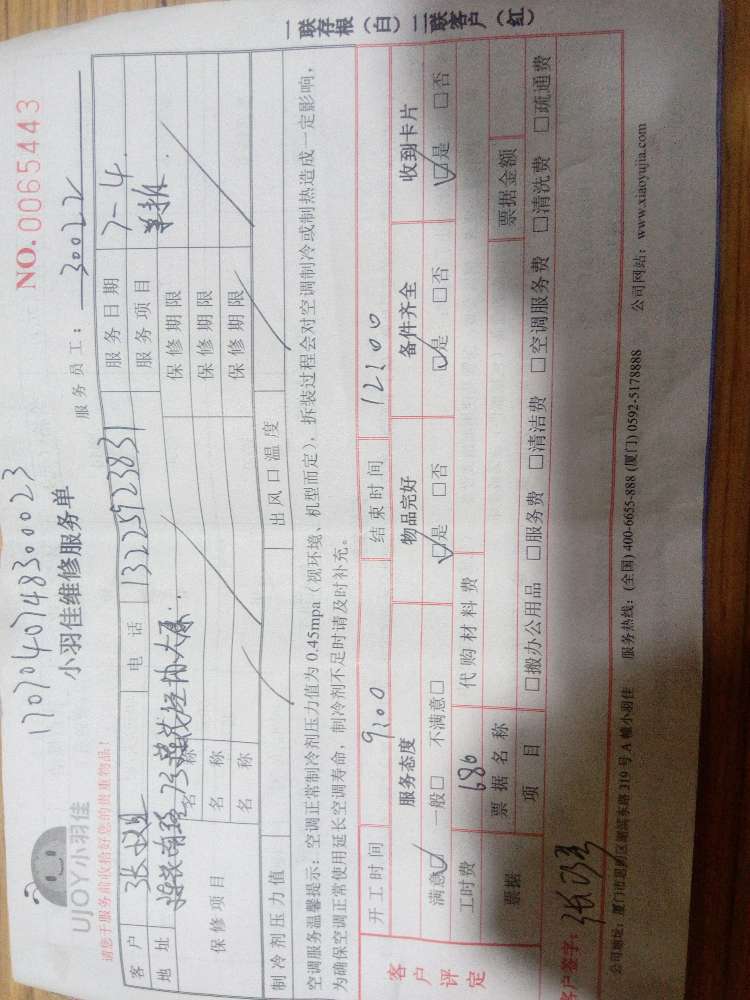 一联存根（白）二联客户（红）
NO.0065443
1707040748300023
UJOY小羽佳
小羽佳维修服务单
服务员工： 30022
请您于服务前收拾好您的贵重物品！
客户 电话 13225923831 服务日期 7-4
地址 服务项目
保修项目 名称 保修期限
名称 保修期限
名称 保修期限
制冷剂压力值 出风口温度
空调服务温馨提示：空调正常制冷剂压力值为0.45mpa（视环境、机型而定），拆装过程会对空调制冷或制热造成一定影响，
为确保空调正常使用延长空调寿命，制冷剂不足时请及时补充。
客户评定
开工时间 9:00 结束时间 12:00
服务态度 物品完好 备件齐全 收到卡片
满意☑ 一般□ 不满意□ ☑是 □否 ☑是 □否 ☑是 □否
工时费 686 代购材料费
票据 票据名称 票据金额
项目 □搬办公用品 □服务费 □清洁费 □空调服务费 □清洗费 □疏通费
客户签字：
公司地址：厦门市思明区湖滨东路319号A幢小羽佳 服务热线：(全国) 400-6655-888 (厦门) 0592-5178888 公司网站：www.xiaoyujia.com